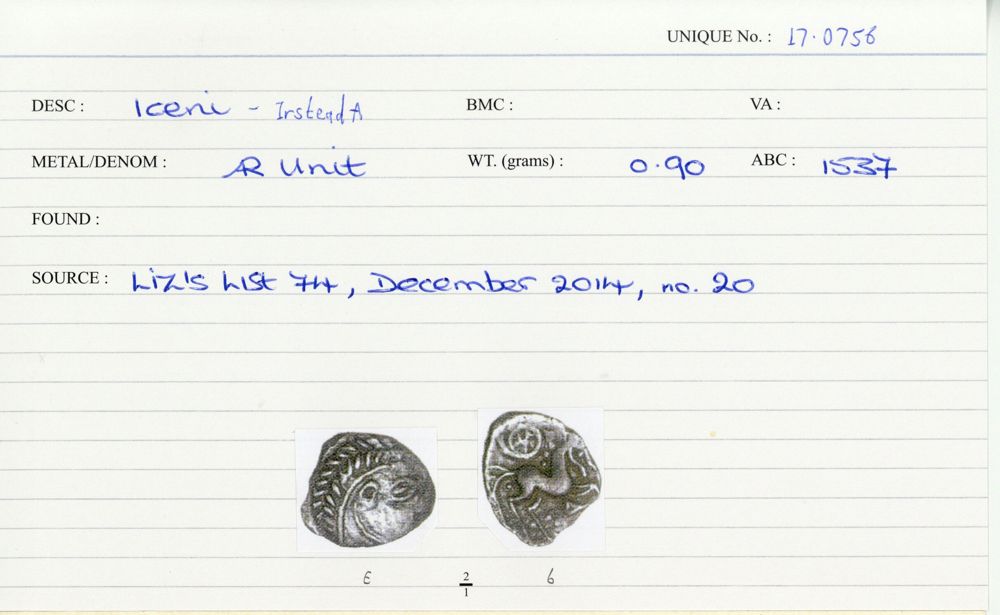 UNIQUE No. : 17.0756
DESC : Iceni - Irstead A BMC : VA :
METAL/DENOM : AR Unit WT. (grams) : 0.90 ABC : 1537
FOUND :
SOURCE : Liz's List 74, December 2014, no. 20
E 2/1 6